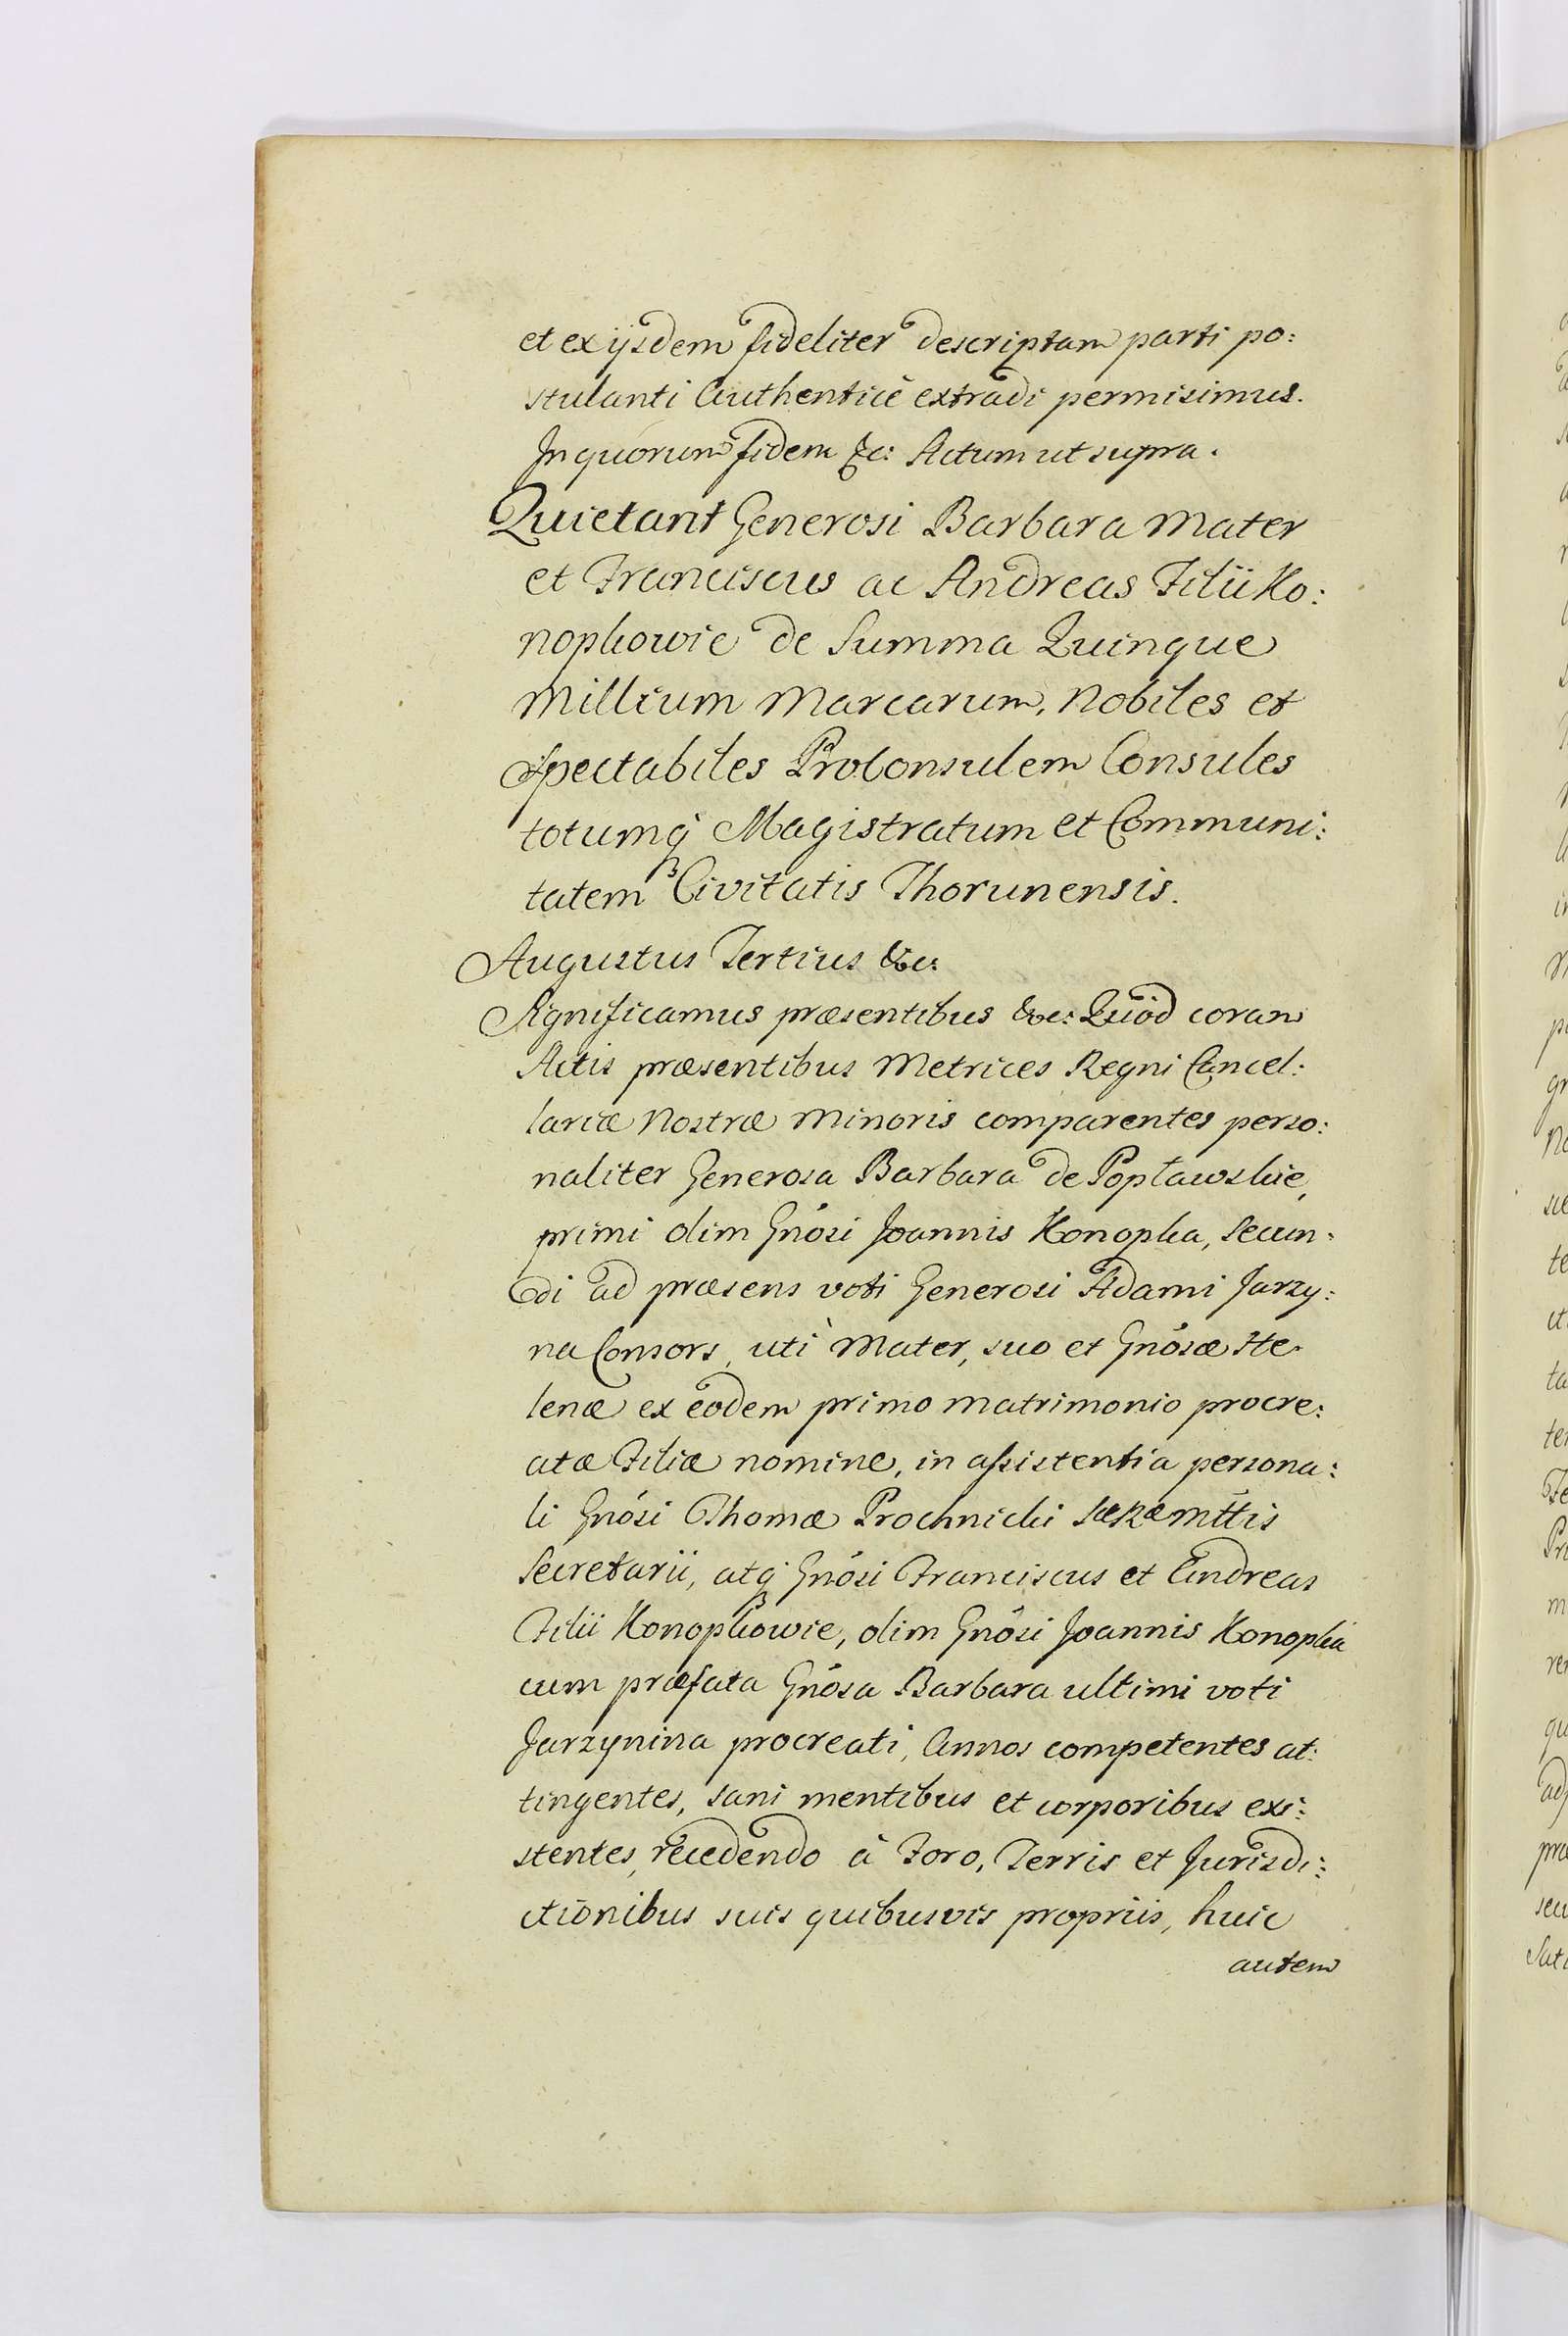 et ex ijsdem fideliter descriptam parti po:
stulanti Authenticè extradi permisimus.
In quorum fidem &c: Actum ut supra.
Quietant Generosi Barbara Mater
et Franciscus ac Andreas Filii Ko:
nopkowie de Summa Quinque
Millium Marcarum, Nobiles et
Spectabiles ProConsulem Consules
totumq Magistratum et Communi:
tatem Civitatis Thorunensis.
Augustus Tertius &c:
Significamus præsentibus &c: Quòd coram
Actis præsentibus Metrices Regni Cancel:
lariæ Nostræ Minoris comparentes perso:
naliter Generosa Barbara de Popławskie,
primi olim Gnősi Joannis Konopka, Secun:
di ad præsens voti Generosi Adami Jarzy:
na Consors, utì Mater, suo et Gnősæ He:
lenæ ex eodem primo matrimonio procre:
atæ Filiæ nomine, in assistentia persona:
li Gnősi Thomæ Prochnicki SæRæMttis
Secretarii, atq Gnősi Franciscus et Andreas
Filii Konopkowie, olim Gnősi Joannis Konopka
cum præfata Gnősa Barbara ultimi voti
Jarzynina procreati, Annos competentes at:
tingentes, sani mentibus et corporibus exi:
stentes, recedendo à Foro, Terris et Jurisdi:
ctionibus suis quibusvis propriis, huic
autem